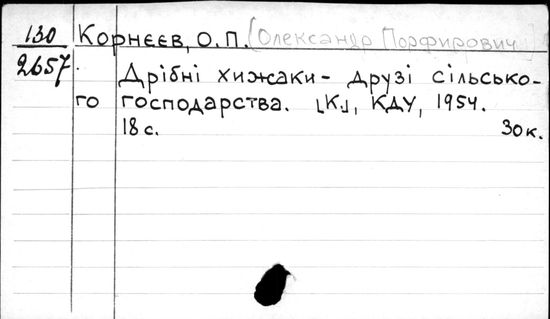 130 Корнєєв, О.П. (Олександр Порфирович)
2657 Дрібні хижаки - друзі сільсько-
го господарства. [К], КДУ, 1954.
18 с. 30 к.